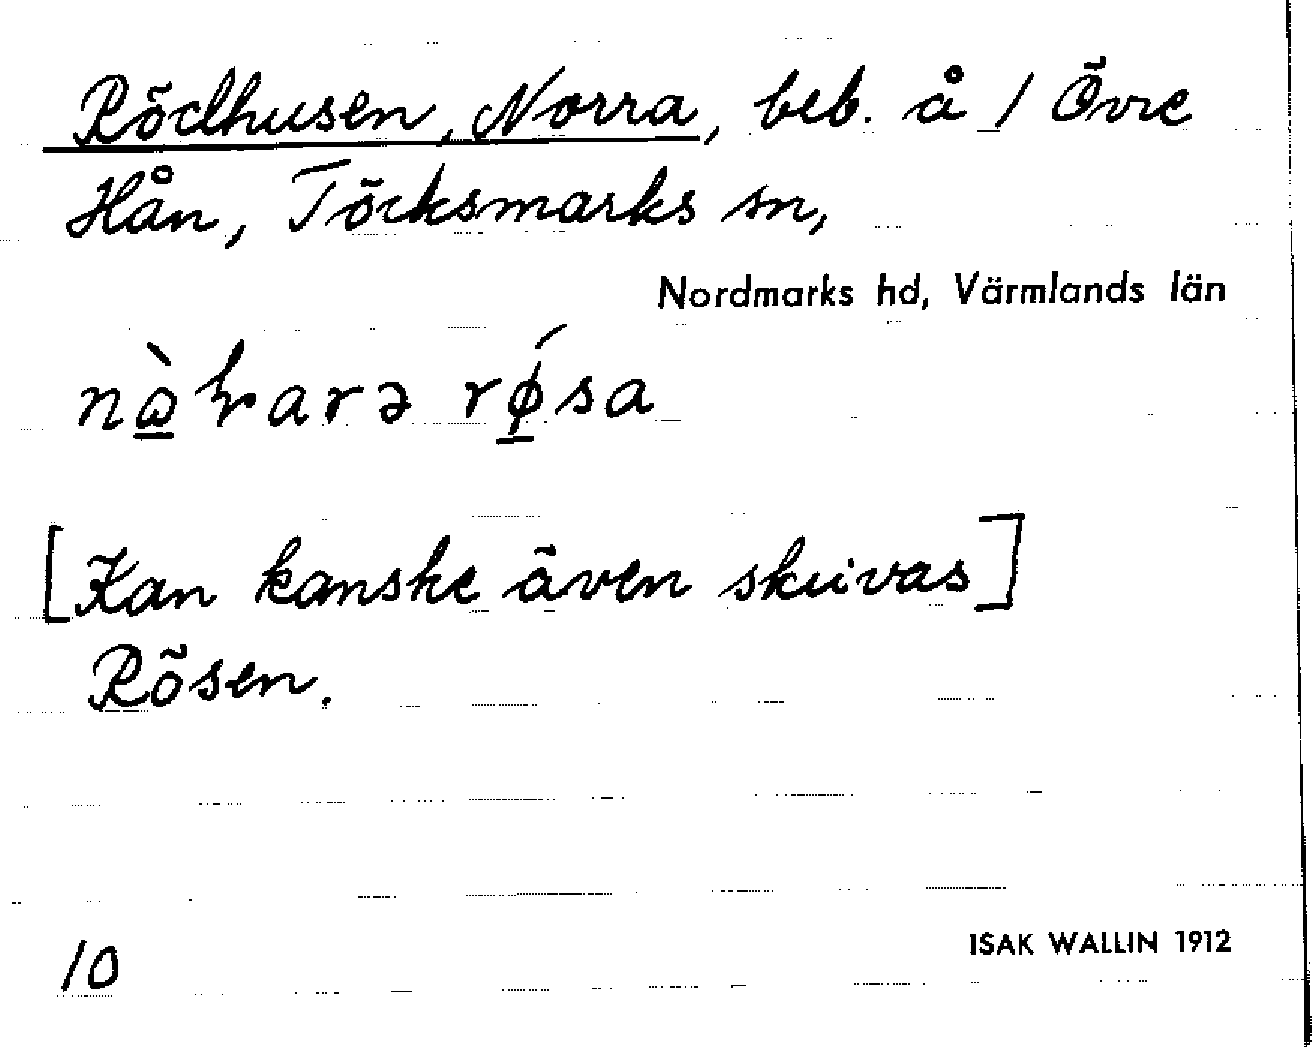 Rödhusen, Norra, beb. å 1 Övre
Hån, Töcksmarks sn,
Nordmarks hd, Värmlands län
rǿsa
[Kan kanske även skrivas]
Rösen.
10
ISAK WALLIN 1912